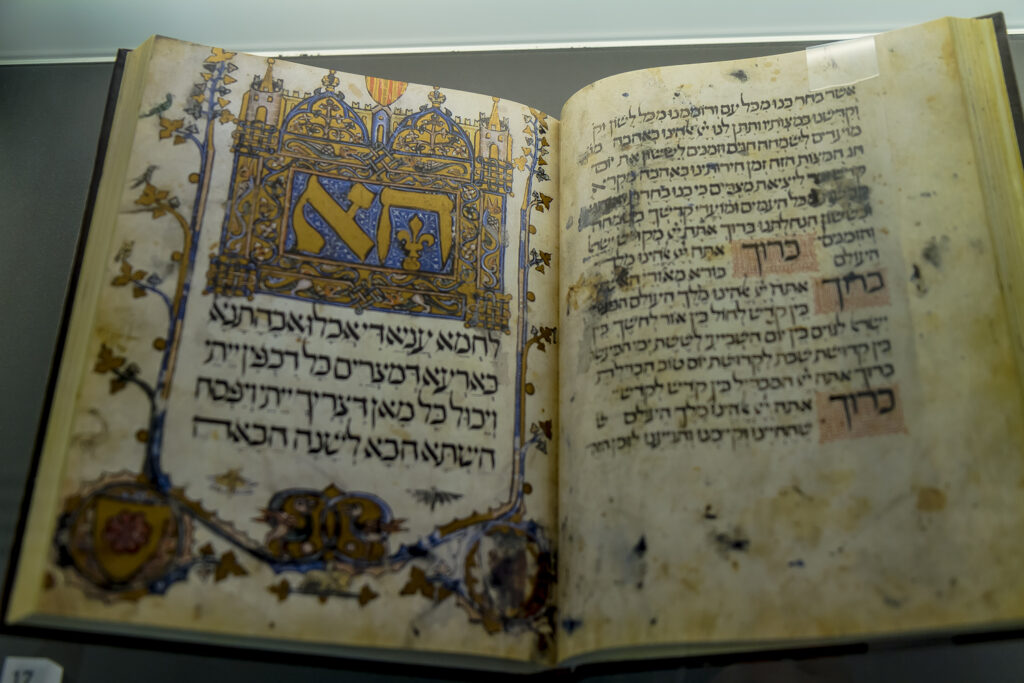 אשר בחר בנו מכל עם ורוממנו מכל לשון וק
וקדשנו במצותיו ותתן לנו יי אלהינו באהבה מו
מועדים לשמחה חגים וזמנים לששון את יום
חג המצות הזה זמן חירותינו באהבה מקרא
ליציאת מצרים כי בנו בחרת
כל העמים ומועדי קדשך
בששון הנחלתנו ברוך אתה יי מקדש ישר
והזמנים ברוך אתה יי אלהינו מלך
העולם בורא מאורי
ברוך אתה יי אלהינו מלך העולם
בין קדש לחול בין אור לחשך בין
ישר לגוים בין יום השביעי לששת ימי המעשה
בין קדושת שבת לקדושת יום טוב הבדלת
ברוך אתה יי המבדיל בין קדש לקדש
ברוך אתה יי אלהינו מלך העולם ש
שהחיינו וקיימנו והגיענו לזמן הזה
הא
לחמא עניא די אכלו אבהתנא
בארעא דמצרים כל דכפין ייתי
ויכול כל מאן דצריך ייתי ויפסח
השתא הכא לשנה הבאה
17